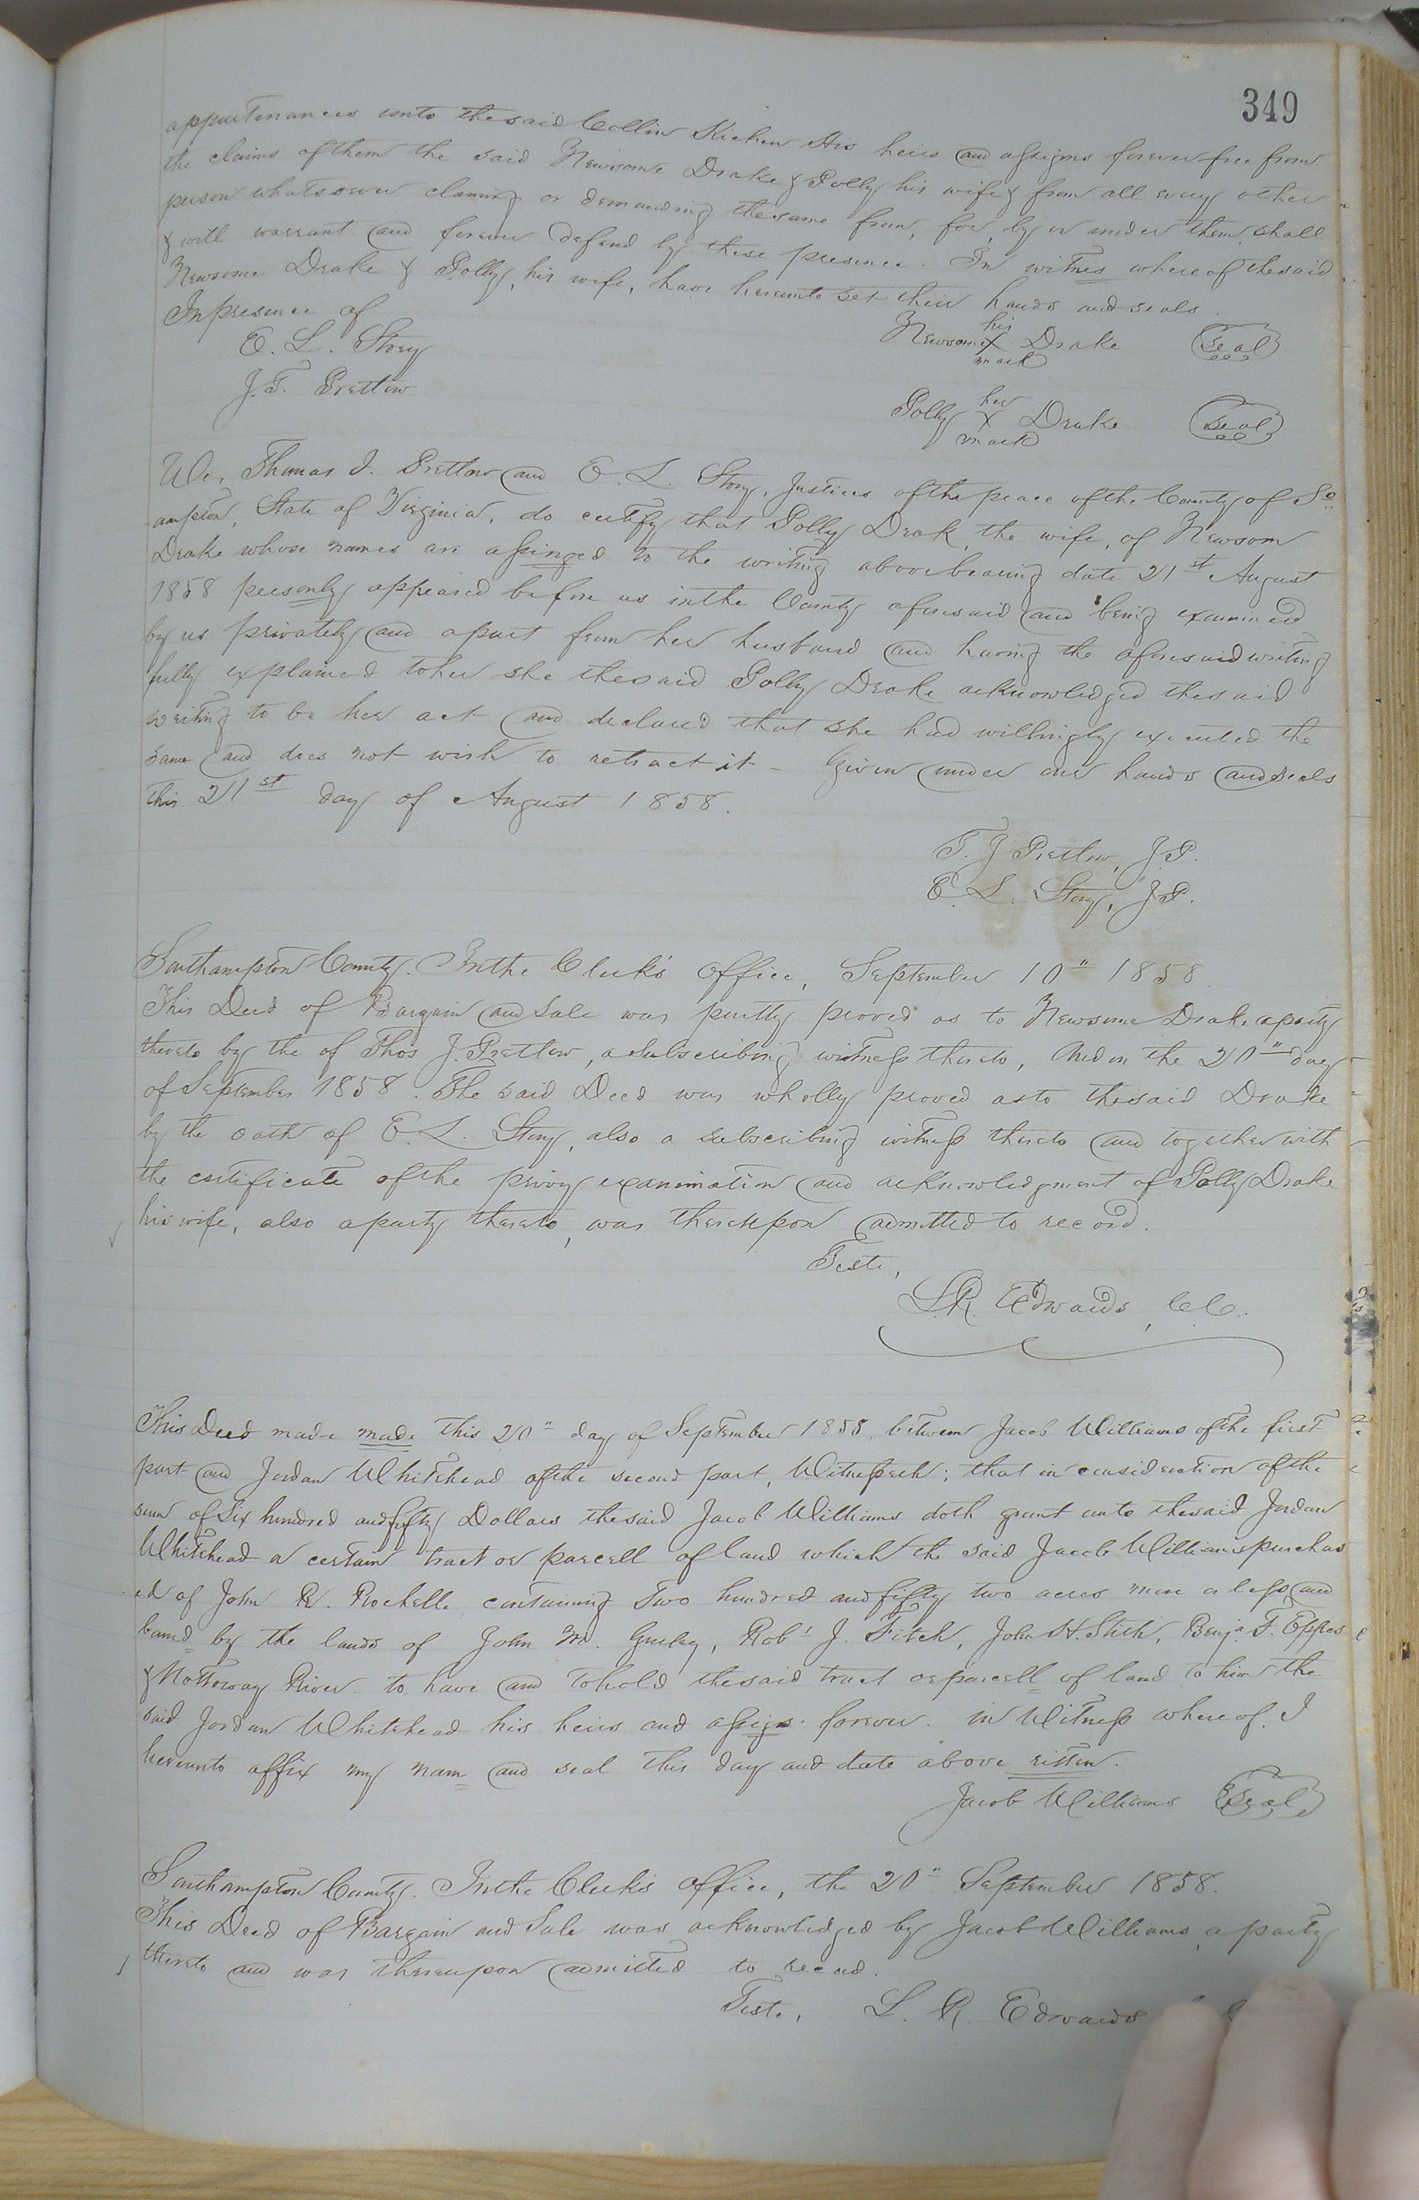 349
appurtenances unto the said Collin Kichen His heirs and assigns forever free from
the claims of them the said Newsome Drake & Polly his wife & from all every other
person whatsoever claming or demanding the same from, for, by or under them, shall
& will warrant and forever defend by these presence. In witnes where of the said
Newsome Drake & Polly, his wife, have hereunto set their hands and seals.
In presence of
E. L. Story
J. T. Pretlow
Newsom his X mark Drake Seal
Polly her X mark Drake Seal
We, Thomas J. Pretlow and E. L. Story, Justices of the peace of the County of So
ampton, State of Virginia, do certify that Polly Drak, the wife, of Newsom
Drake whose names are assinged to the writing above bearing date 21st August
1858 personly appeared before us in the County aforesaid and being examined
by us privately and apart from her husband and having the aforesaid writing
fully explained to her she the said Polly Drake acknowledged the said
writing to be her act and declared that she had willingly executed the
same and does not wish to retract it - Given under our hands and seals
this 21st day of August 1858.
T. J Pretlow, J.P.
E. L. Story, J.P.
Southampton County. In the Clerk's office, September 10" 1858
This Deed of Bargain and Sale was partly proved as to Newsome Drake a party
thereto by the of Thos J. Pretlow, a subscribing witness thereto, And on the 20" day
of September 1858. The said Deed was wholly proved as to the said Drake
by the oath of E. L. Story, also a subscribing witness thereto and together with
the certificate of the privy examination and acknowledgment of Polly Drake
his wife, also a party thereto, was thereupon admitted to record.
Teste,
L.R. Edwards, C.C.
This Deed made made this 20" day of September 1858, between Jacob Williams of the first
part and Jordan Whitehead of the second part, Witnesseth; that in consideration of the
sum of Six hundred and fifty Dollars the said Jacob Williams doth grant unto the said Jordan
Whitehead a certain tract or parcell of land which the said Jacob Williams purchas
ed of John R. Rochelle containing Two hundred and fifty two acres more or less and
bound by the lands of John M. Gurley, Robt J. Fitch, John H. Stith, Benja F. Eppes
& Nottoway River. to have and to hold the said tract or parcell of land to him the
said Jordan Whitehead his heirs and assigns forever. in Witness where of. I
hereunto affix my nam and seal this day and date above ritten.
Jacob Williams Seal
Southampton County. In the Clerk's office, the 20" September 1858.
This Deed of Bargain and Sale was acknowledged by Jacob Williams, a party
thereto and was thereupon admitted to record.
Teste, L. R. Edwards